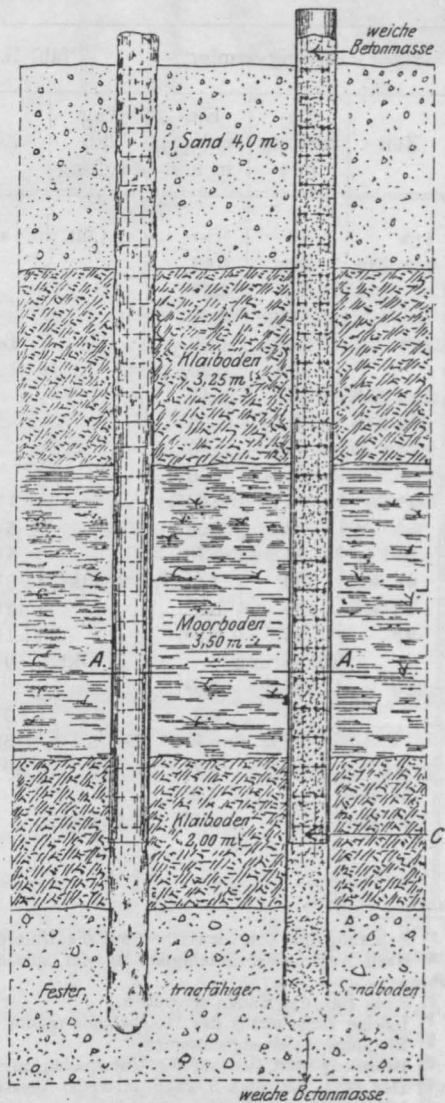 weiche
Betonmasse
Sand 4,0 m.
Klaiboden
3,25 m
Moorboden
3,50 m
A. A.
Klaiboden
2,00 m
C
Fester, tragfähiger Sandboden
weiche Betonmasse